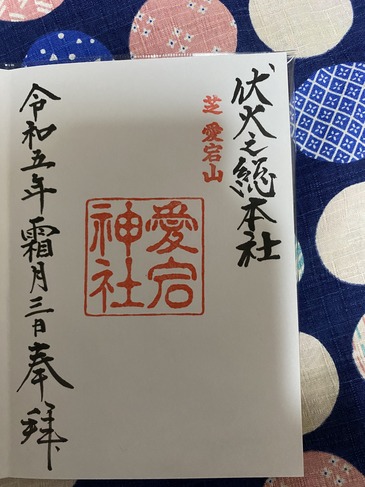 伏火之総本社
芝 愛宕山
愛宕神社
令和五年 霜月三日 奉拝